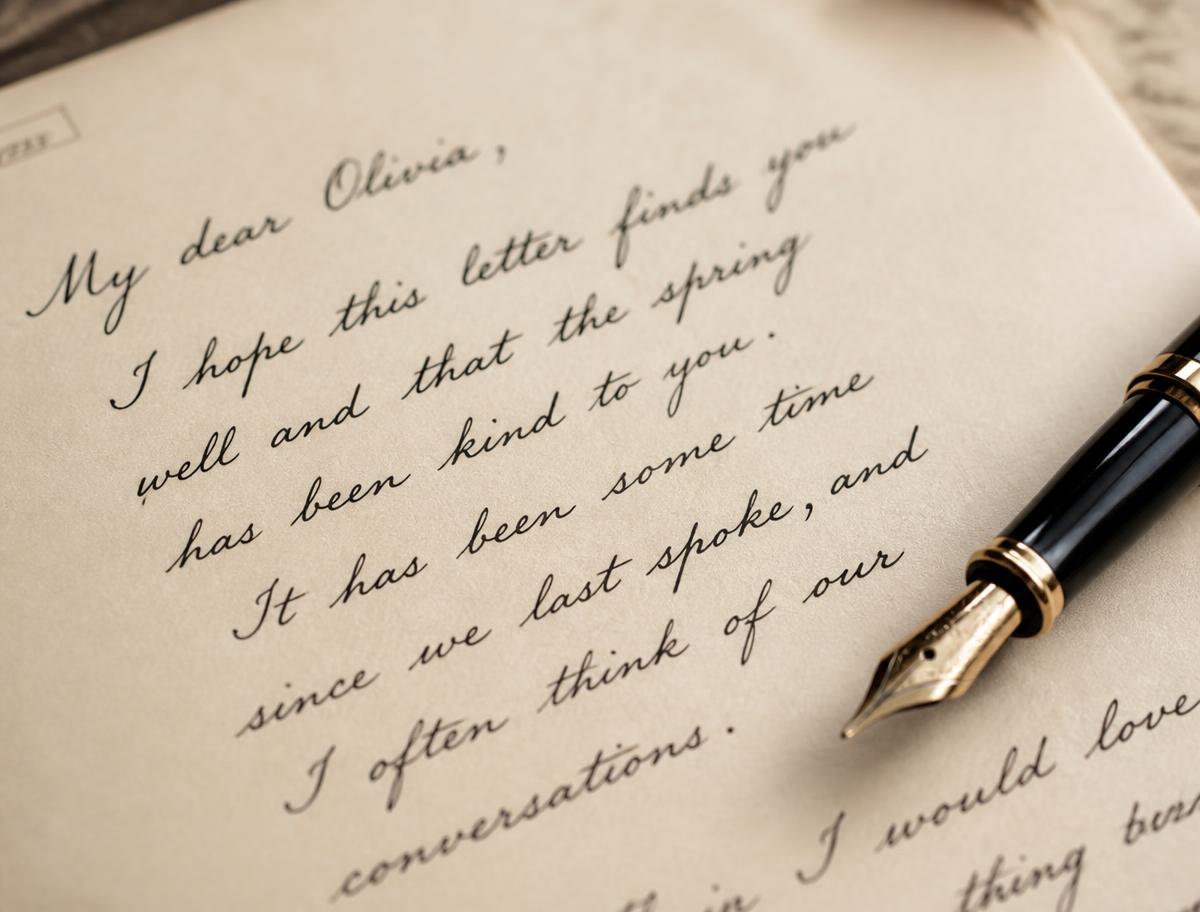 My dear Olivia,
I hope this letter finds you
well and that the spring
has been kind to you.
It has been some time
since we last spoke, and
I often think of our
conversations.
I would love
thing